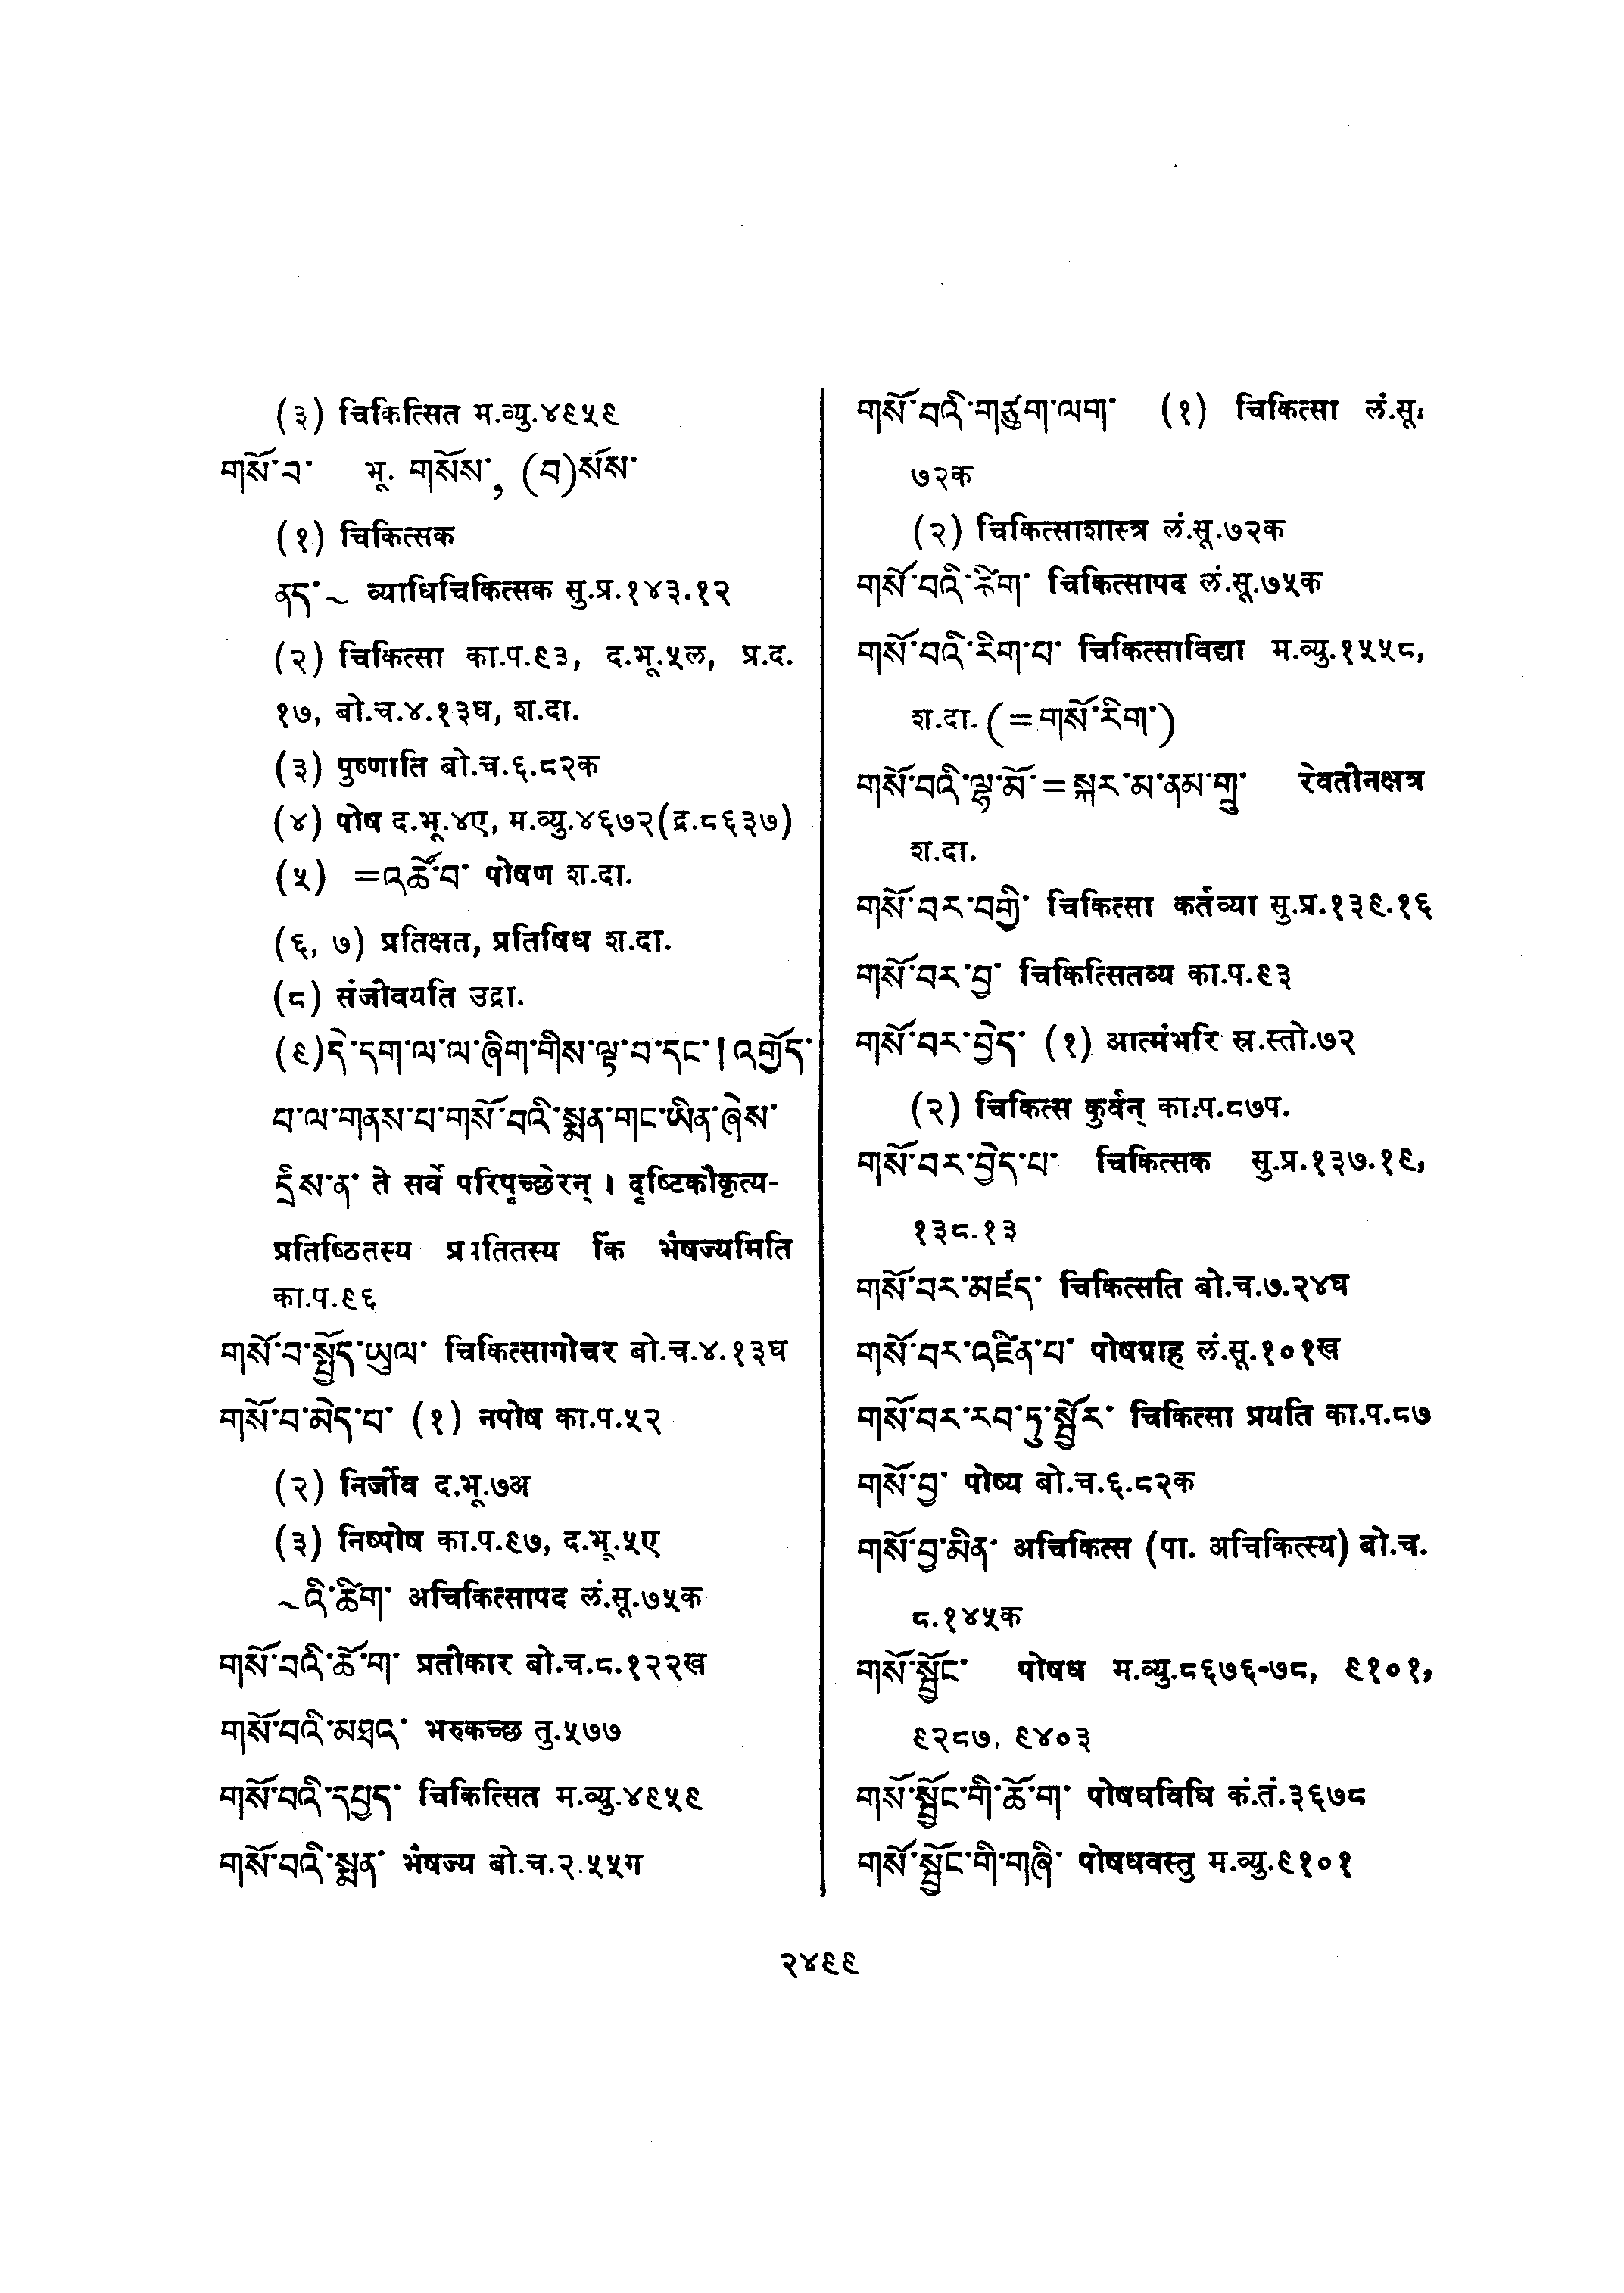 (३) चिकित्सित म.व्यु.४९५९
གསོ་བ་ भू. གསོས་, (བ)སོས་
(१) चिकित्सक
ནད་~ व्याधिचिकित्सक सु.प्र.१४३.१२
(२) चिकित्सा का.प.९३, द.भू.५ल, प्र.द.
१७, बो.च.४.१३घ, श.दा.
(३) पुष्णाति बो.च.६.८२क
(४) पोष द.भू.४ए, म.व्यु.४६७२(द्र.८६३७)
(५) =འཚོ་བ་ पोषण श.दा.
(६, ७) प्रतिक्षत, प्रतिषिध श.दा.
(८) संजीवयति उद्रा.
(९)དེ་དག་ལ་ལ་ཞིག་གིས་ལྟ་བ་དང་།འགྱོད་
པ་ལ་གནས་པ་གསོ་བའི་སྨན་གང་ཡིན་ཞེས་
དྲིས་ན་ ते सर्वे परिपृच्छेरन् । दृष्टिकौकृत्य-
प्रतिष्ठितस्य प्र तितस्य किं भैषज्यमिति
का.प.९६
གསོ་བ་སྤྱོད་ཡུལ་ चिकित्सागोचर बो.च.४.१३घ
གསོ་བ་མེད་པ་ (१) नपोष का.प.५२
(२) निर्जीव द.भू.७अ
(३) निष्पोष का.प.९७, द.भू.५ए
~འི་ཚིག་ अचिकित्सापद लं.सू.७५क
གསོ་བའི་ཆོ་ག་ प्रतीकार बो.च.८.१२२ख
གསོ་བའི་མཐའ་ भरुकच्छ तु.५७७
གསོ་བའི་དཔྱད་ चिकित्सित म.व्यु.४९५९
གསོ་བའི་སྨན་ भैषज्य बो.च.२.५५ग
གསོ་བའི་གཙུག་ལག་ (१) चिकित्सा लं.सू.
७२क
(२) चिकित्साशास्त्र लं.सू.७२क
གསོ་བའི་ཚིག་ चिकित्सापद लं.सू.७५क
གསོ་བའི་རིག་པ་ चिकित्साविद्या म.व्यु.१५५८,
श.दा.(=གསོ་རིག་)
གསོ་བའི་ལྷ་མོ་=སྐར་མ་ནམ་གྲུ་ रेवतीनक्षत्र
श.दा.
གསོ་བར་བགྱི་ चिकित्सा कर्तव्या सु.प्र.१३९.१६
གསོ་བར་བྱ་ चिकित्सितव्य का.प.९३
གསོ་བར་བྱེད་ (१) आत्मंभरि स्र.स्तो.७२
(२) चिकित्स कुर्वन् का.प.८७प.
གསོ་བར་བྱེད་པ་ चिकित्सक सु.प्र.१३७.१९,
१३८.१३
གསོ་བར་མཛད་ चिकित्सति बो.च.७.२४घ
གསོ་བར་འཛིན་པ་ पोषग्राह लं.सू.१०१ख
གསོ་བར་རབ་ཏུ་སྦྱོར་ चिकित्सा प्रयति का.प.८७
གསོ་བྱ་ पोष्य बो.च.६.८२क
གསོ་བྱ་མིན་ अचिकित्स (पा. अचिकित्स्य) बो.च.
८.१४५क
གསོ་སྦྱོང་ पोषध म.व्यु.८६७६-७८, ९१०१,
९२८७, ९४०३
གསོ་སྦྱོང་གི་ཆོ་ག་ पोषधविधि कं.तं.३६७८
གསོ་སྦྱོང་གི་གཞི་ पोषधवस्तु म.व्यु.९१०१
२४९९